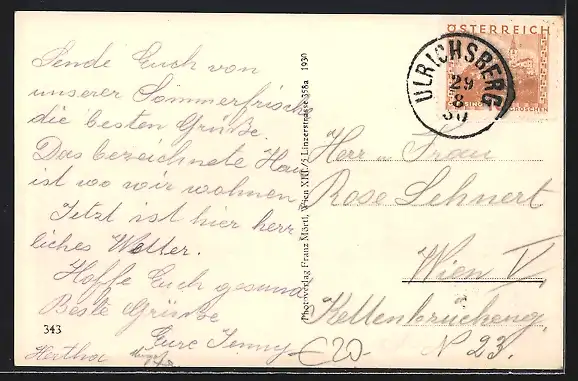 Sende Euch von
unserer Sommerfrische
die besten Grüße.
Das bezeichnete Haus
ist wo wir wohnen
Jetzt ist hier herr
liches Wetter.
Hoffe Euch gesund
Beste Grüße
Eure Jenny
Hertha
343
Photoverlag Franz Mörtl, Wien XIII/5 Linzerstrasse 358a 1930
ÖSTERREICH
GROSCHEN
ULRICHSBERG
29
8
30
Herr u Frau
Rose Lehnert
Wien V
Kettenbrückeng.
N 23.
€20-